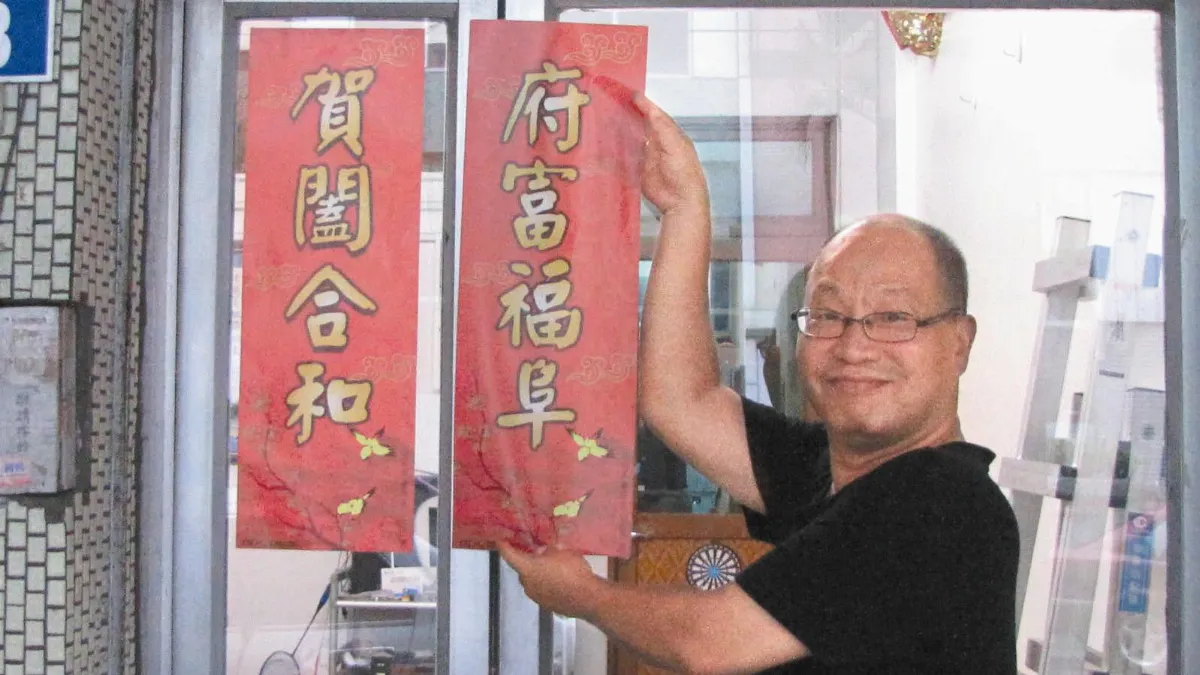 府富福阜
賀闔合和